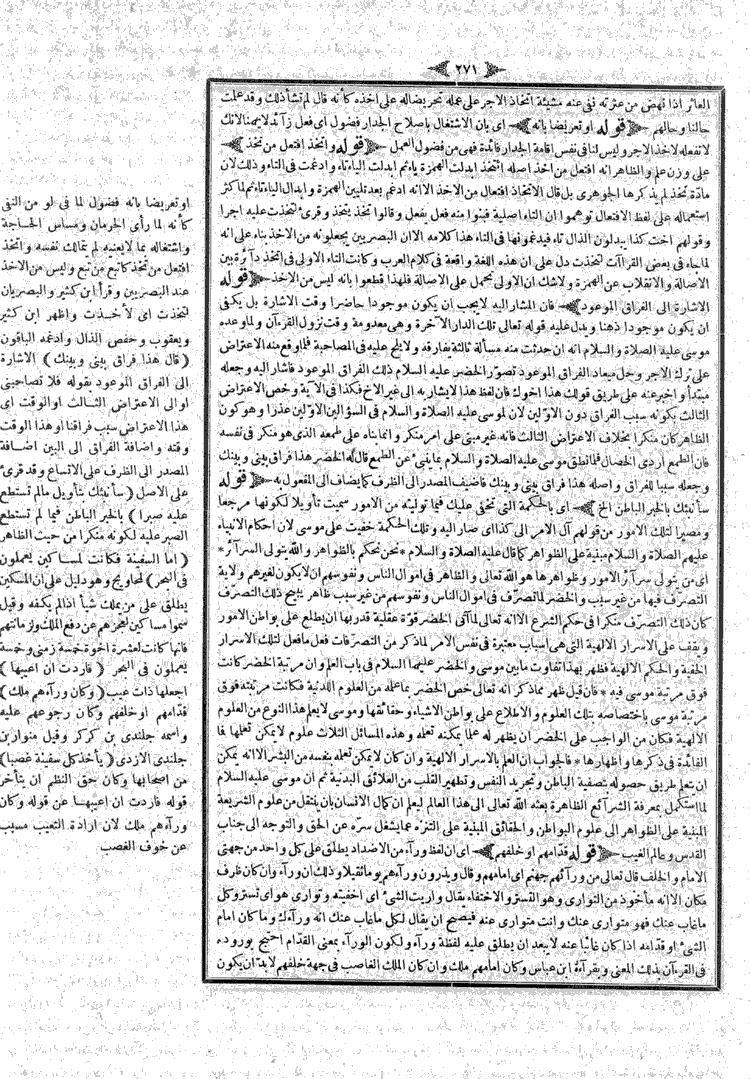 ٢٧١
العاثر اذا نهض من عثرته فنى عنه مشيئة اتخاذ الاجر على عمله تحريضا له على اخذه كأنه قال لم تشأ ذلك وقد علمت
حالنا وحالهم قوله او تعريضا بانه اى بان الاشتغال باصلاح الجدار فضول اى فعل زآئد لا يهمنا لانك
لا تفعله لاخذ الاجر وليس لنا فى نفس اقامة الجدار فائدة فهى من فضول العمل قوله واتخذ افتعل من تخذ
على وزن علم والظاهر انه افتعل من اخذ اصله ائتخذ ابدلت الهمزة ياء ثم ابدلت الياء تاء وادغمت فى التاء وذلك لان
مادّة تخذ لم يذكرها الجوهرى بل قال الاتخاذ افتعال من الاخذ الا انه ادغم بعد تليين الهمزة وابدال الياء تاء ثم لما كثر
استعماله على لفظ الافتعال توهموا ان التاء اصلية فبنوا منه فعل يفعل وقالوا تخذ يتخذ وقرئ لتخذت عليه اجرا
وقولهم اخت كذا يبدلون الذال تاء فيدغمونها فى التاء هذا كلامه الا ان البصريين يجعلونه من الاخذ بناء على انه
لما جاء فى بعض القرآآت لتخذت دل على ان هذه اللغة واقعة فى كلام العرب وكانت التاء الاولى فى اتخذ دآئرة بين
الاصالة والانقلاب عن الهمزة ولا شك ان الاولى تحمل على الاصالة فلهذا قطعوا بانه ليس من الاخذ قوله
الاشارة الى الفراق الموعود فان المشار اليه لا يجب ان يكون موجودا حاضرا وقت الاشارة بل يكفى
ان يكون موجودا ذهنا ويدل عليه قوله تعالى تلك الدار الآخرة وهى معدومة وقت نزول القرءآن ولما وعده
موسى عليه الصلاة والسلام انه ان حدثت منه مسألة ثالثة يفارقه ولا يلح عليه فى المصاحبة فلما وقع منه الاعتراض
على ترك الاجر وحل ميعاد الفراق الموعود تصوّر الخضر عليه السلام ذلك الفراق الموعود فاشار اليه وجعله
مبتدأ واخبر عنه على طريق قولك هذا اخوك فان لفظ هذا لا يشار به الى غير الاخ فكذا فى الآية وخص الاعتراض
الثالث بكونه سبب الفراق دون الاوّلين لان لموسى عليه الصلاة والسلام فى السؤالين الاوّلين عذرا وهو كون
الظاهر كان منكرا بخلاف الاعتراض الثالث فانه غير مبنى على امر منكر وانما بناه على طمعه الذى هو منكر فى نفسه
فان الطمع اردى الخصال فلما نطق موسى عليه الصلاة والسلام بما ينبئ عن الطمع قال له الخضر هذا فراق بينى وبينك
وجعله سببا للفراق واصله هذا فراق بينى وبينك فاضيف المصدر الى الظرف كما يضاف الى المفعول به قوله
سأنبئك بالخبر الباطن الخ اى بالحكمة التى تخفى عليك فيما توليته من الامور سميت تأويلا لكونها مرجعا
ومصيرا لتلك الامور من قولهم آل الامر الى كذا اى صار اليه وتلك الحكمة خفيت على موسى لان احكام الانبياء
عليهم الصلاة والسلام مبنية على الظواهر كما قال عليه الصلاة والسلام * نحن نحكم بالظواهر والله يتولى السرآئر *
اى من يتولى سرآئر الامور وظواهرها هو الله تعالى والظاهر فى اموال الناس ونفوسهم ان لا يكون لغيرهم ولاية
التصرّف فيها من غير سبب والخضر لما تصرّف فى اموال الناس ونفوسهم من غير سبب ظاهر يبيح ذلك التصرّف
كان ذلك التصرّف منكرا فى حكم الشرع الا انه تعالى لما آتى الخضر قوّة عقلية قدر بها ان يطلع على بواطن الامور
ويقف على الاسرار الالهية التى هى اسباب معتبرة فى نفس الامر لما ذكر من التصرّفات فعل ما فعل لتلك الاسرار
الخفية والحكم الالهية فظهر بهذا تفاوت ما بين موسى والخضر عليهما السلام فى باب العلم وان مرتبة الخضر كانت
فوق مرتبة موسى فيه * فان قيل ظهر بما ذكر انه تعالى خص الخضر بما علمه من العلوم اللدنية فكانت مرتبته فوق
مرتبة موسى باختصاصه بتلك العلوم والاطلاع على بواطن الاشياء وحقائقها وموسى لا يعلم هذا النوع من العلوم
الالهية فكان من الواجب على الخضر ان يظهر له علما يمكنه تعلمه وهذه المسائل الثلاث علوم لا يمكن تعلمها فما
الفائدة فى ذكرها واظهارها * فالجواب ان العلم بالاسرار الالهية وان كان لا يمكن تعلمه بنفسه من البشر الا انه يمكن
ان يتعلم طريق حصوله بتصفية الباطن وتجريد النفس وتطهير القلب من العلائق البدنية ثم ان موسى عليه السلام
لما استكمل بمعرفة الشرآئع الظاهرة بعثه الله تعالى الى هذا العالم ليعلم ان كمال الانسان بان ينتقل من علوم الشريعة
المبنية على الظواهر الى علوم البواطن والحقائق المبنية على التنزه عما يشغل سرّه عن الحق والتوجه الى جناب
القدس وعالم الغيب قوله قدّامهم او خلفهم اى ان لفظ ورآء من الاضداد يطلق على كل واحد من جهتى
الامام والخلف قال تعالى من ورآئهم جهنم اى امامهم وقال ويذرون ورآءهم يوما ثقيلا وذلك ان ورآء وان كان ظرف
مكان الا انه مأخوذ من التوارى وهو التستر والاختفاء يقال واريت الشئ اى اخفيته وتوارى هو اى تستر وكل
ما غاب عنك فهو متوارى عنك وانت متوارى عنه فيصح ان يقال لكل ما غاب عنك انه ورآءك وما كان امام
الشئ او قدّامه اذا كان غائبا عنه لا يبعد ان يطلق عليه لفظة ورآء ولكون الورآء بمعنى القدّام احتج بوروده
فى القرءآن بذلك المعنى وبقرآءة ابن عباس وكان امامهم ملك وان كان الملك الغاصب فى جهة خلفهم لا بدّ ان يكون
او تعريضا بانه فضول لما فى لو من النفى
كأنه لما رأى الحرمان ومساس الحاجة
واشتغاله بما لا يعنيه لم يتمالك نفسه واتخذ
افتعل من تخذ كاتبع من تبع وليس من الاخذ
عند البصريين وقرأ ابن كثير والبصريان
لتخذت اى لأخذت واظهر ابن كثير
ويعقوب وحفص الذال وادغمه الباقون
(قال هذا فراق بينى وبينك) الاشارة
الى الفراق الموعود بقوله فلا تصاحبنى
او الى الاعتراض الثالث او الوقت اى
هذا الاعتراض سبب فراقنا او هذا الوقت
وقته واضافة الفراق الى البين اضافة
المصدر الى الظرف على الاتساع وقد قرئ
على الاصل (سأنبئك بتأويل ما لم تستطع
عليه صبرا) بالخبر الباطن فيما لم تستطع
الصبر عليه لكونه منكرا من حيث الظاهر
(اما السفينة فكانت لمساكين يعملون
فى البحر) لمحاويج وهو دليل على ان المسكين
يطلق على من يملك شيأ اذا لم يكفه وقيل
سموا مساكين لعجزهم عن دفع الملك ولزمانتهم
فانها كانت لعشرة اخوة خمسة زمنى وخمسة
يعملون فى البحر (فاردت ان اعيبها)
اجعلها ذات عيب (وكان ورآءهم ملك)
قدّامهم او خلفهم وكان رجوعهم عليه
واسمه جلندى بن كركر وقيل منوار بن
جلندى الازدى (يأخذ كل سفينة غصبا)
من اصحابها وكان حق النظم ان يتأخر
قوله فاردت ان اعيبها عن قوله وكان
ورآءهم ملك لان ارادة التعيب مسبب
عن خوف الغصب